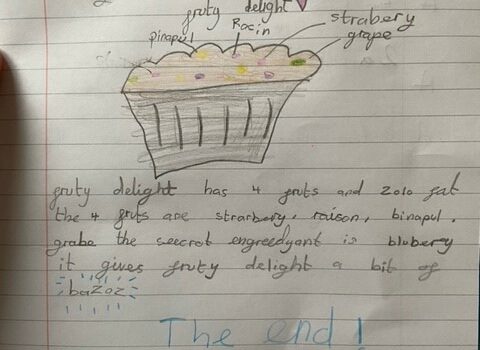 fruty delight
pinapul
Racin
strabery
grape
fruty delight has 4 fruts and 2010 fat
the 4 fruts are strarbery, raison, binapul,
grabe the seecrot engreedyant is blubery
it gives fruty delight a bit of
bazoz
The end!